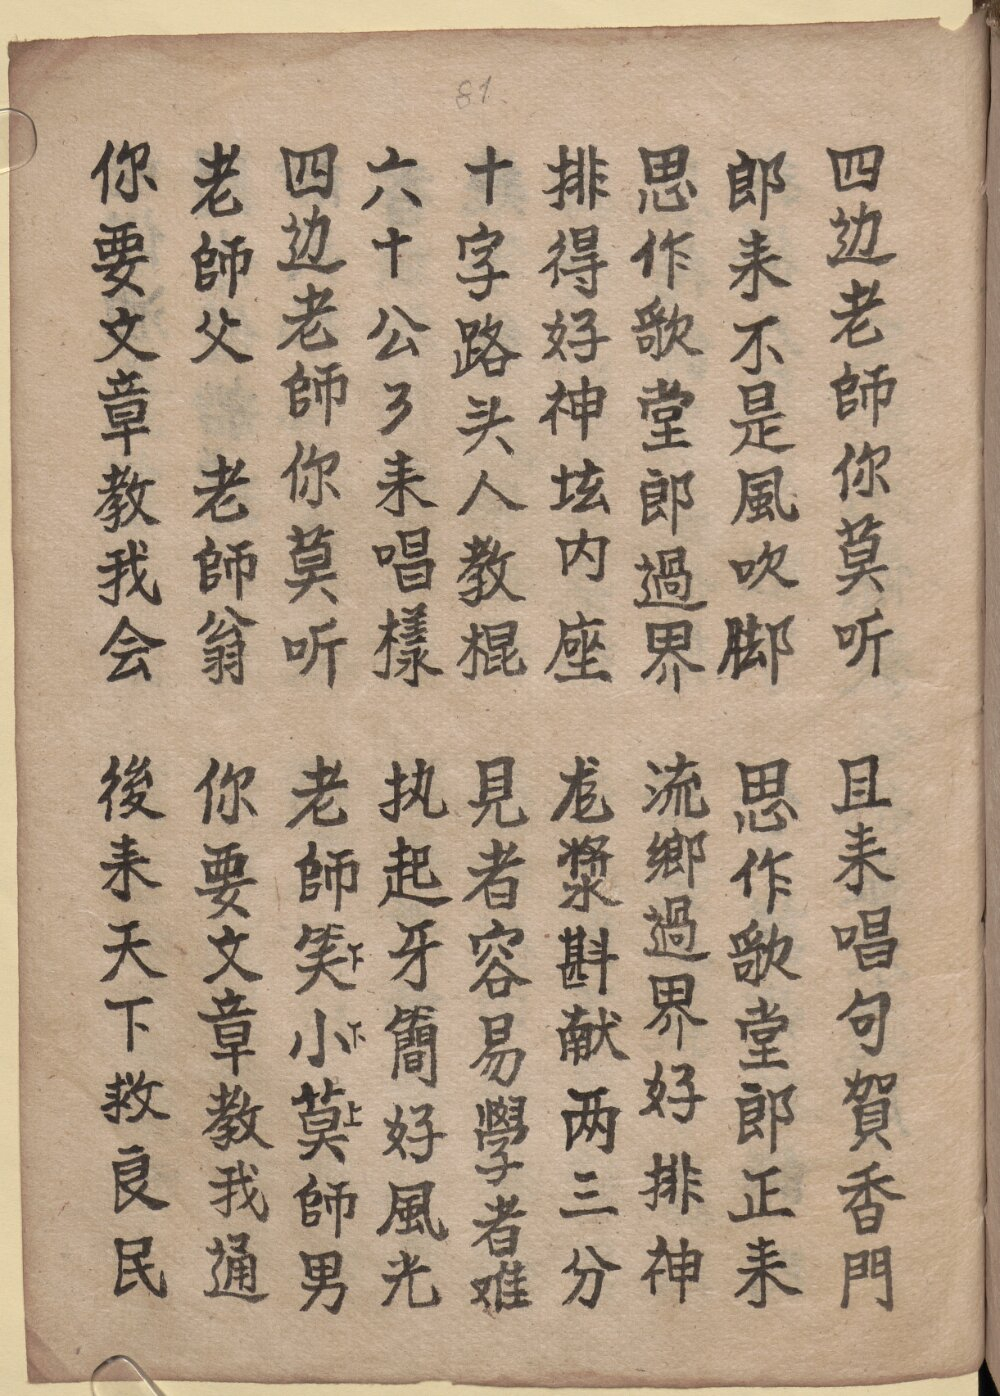 81.
四边老師你莫听 且来唱句賀香門
郎来不是風吹脚 思作歌堂郎正来
思作歌堂郎過界 流鄉過界好排神
排得好神坛内座 龙漿斟献两三分
十字路头人教棍 見者容易學者难
六十公了来唱樣 执起牙簡好風光
四边老師你莫听 老師笑下小下莫上師男
老師父 老師翁 你要文章教我通
你要文章教我会 後来天下救良民